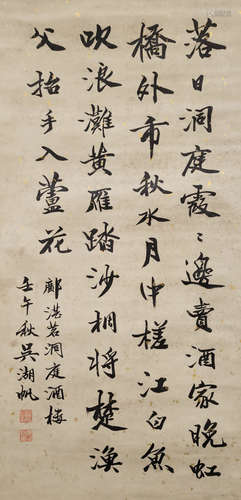 落日洞庭霞々邊賣酒家晚虹
橋外市秋水月中槎江白魚
吹浪灘黃雁踏沙相將楚漁
父招手入蘆花
鄺湛若洞庭酒樓
壬午秋吳湖帆